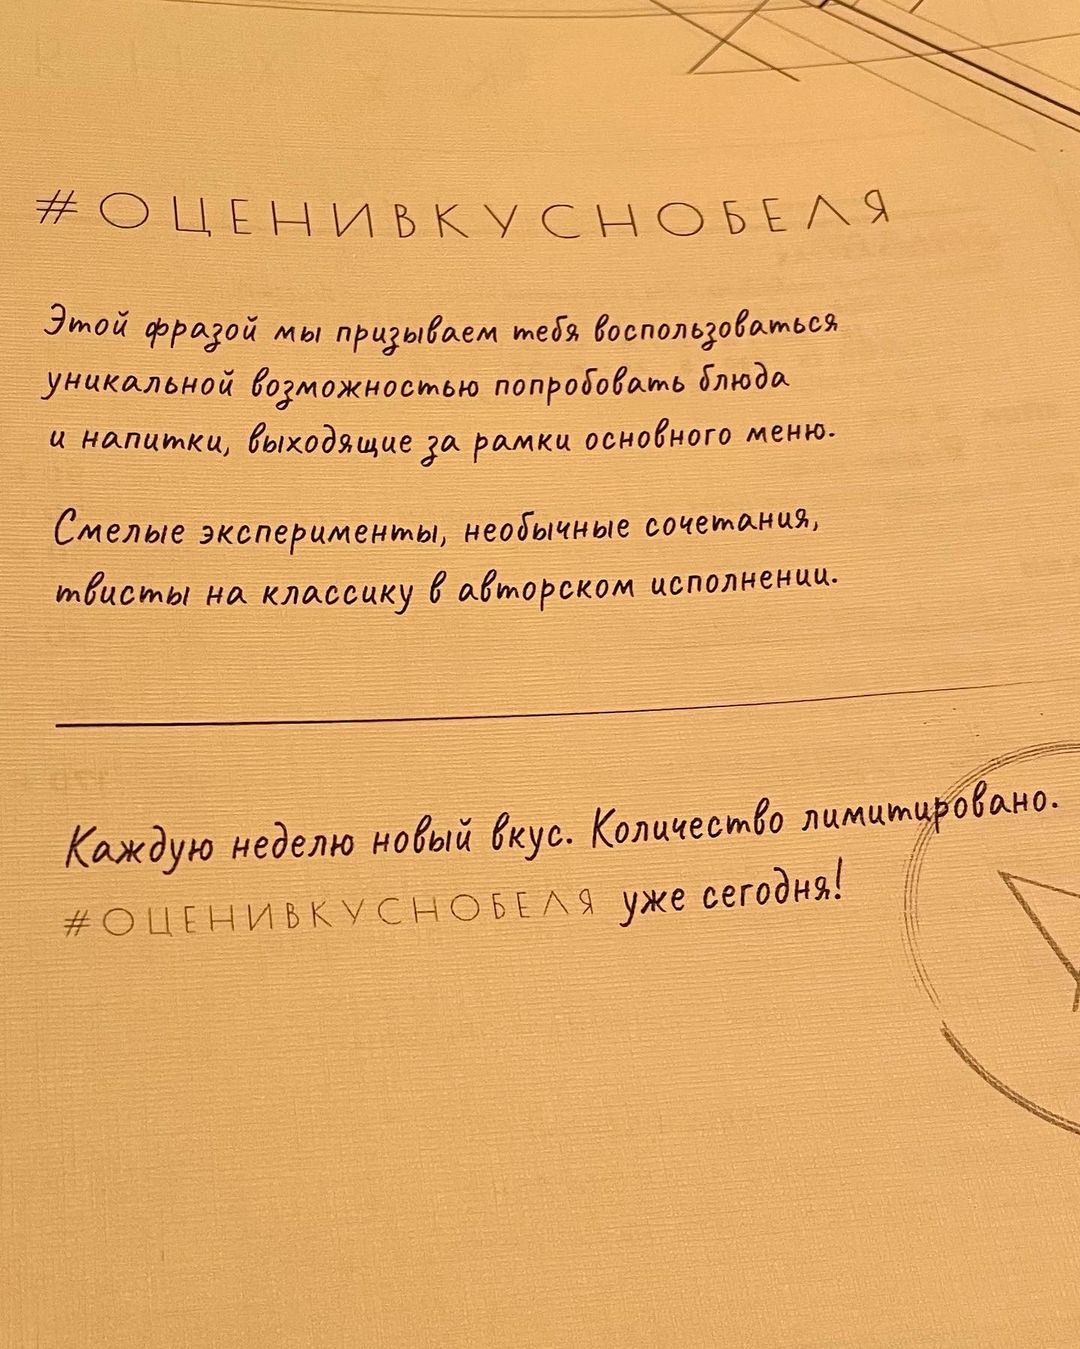 #ОЦЕНИВКУСНОБЕЛЯ
Этой фразой мы призываем тебя воспользоваться
уникальной возможностью попробовать блюда
и напитки, выходящие за рамки основного меню.
Смелые эксперименты, необычные сочетания,
твисты на классику в авторском исполнении.
Каждую неделю новый вкус. Количество лимитировано.
#ОЦЕНИВКУСНОБЕЛЯ уже сегодня!